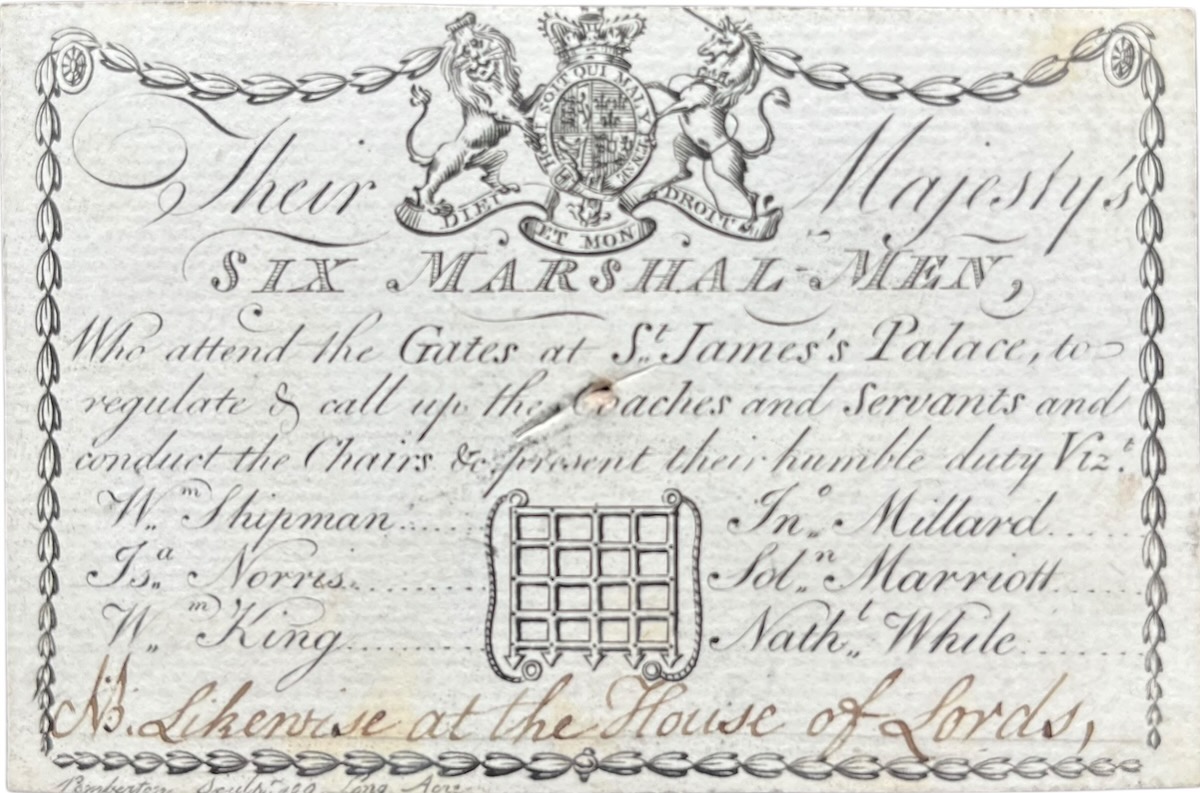 HONI SOIT QUI MAL Y PENSE
DIEU ET MON DROIT
Their Majesty's
SIX MARSHAL-MEN,
Who attend the Gates at St. James's Palace, to
regulate & call up the Coaches and Servants and
conduct the Chairs &c. present their humble duty Vizt.
Wm. Shipman
Jno. Millard
Isa. Norris
Soln. Marriott
Wm. King
Natht. While
NB. Likewise at the House of Lords,
Pemberton Sculpt. Long Acre